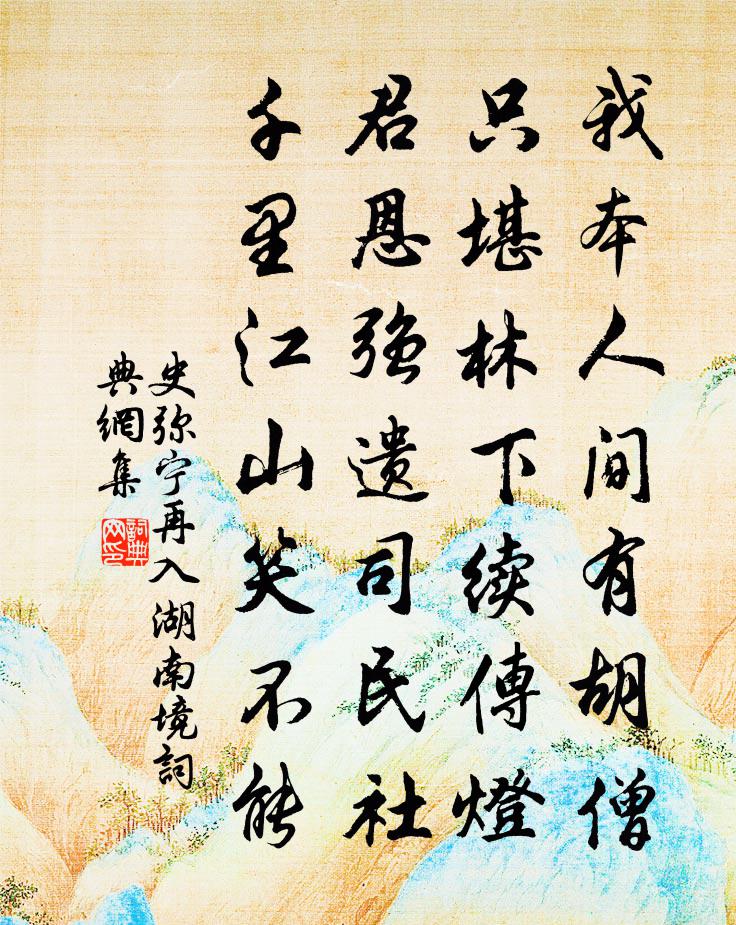 我本人间有胡僧
只堪林下续傳燈
君恩强遗司民社
千里江山笑不能
史弥宁再入湖南境詞
典網集
詞典
网印